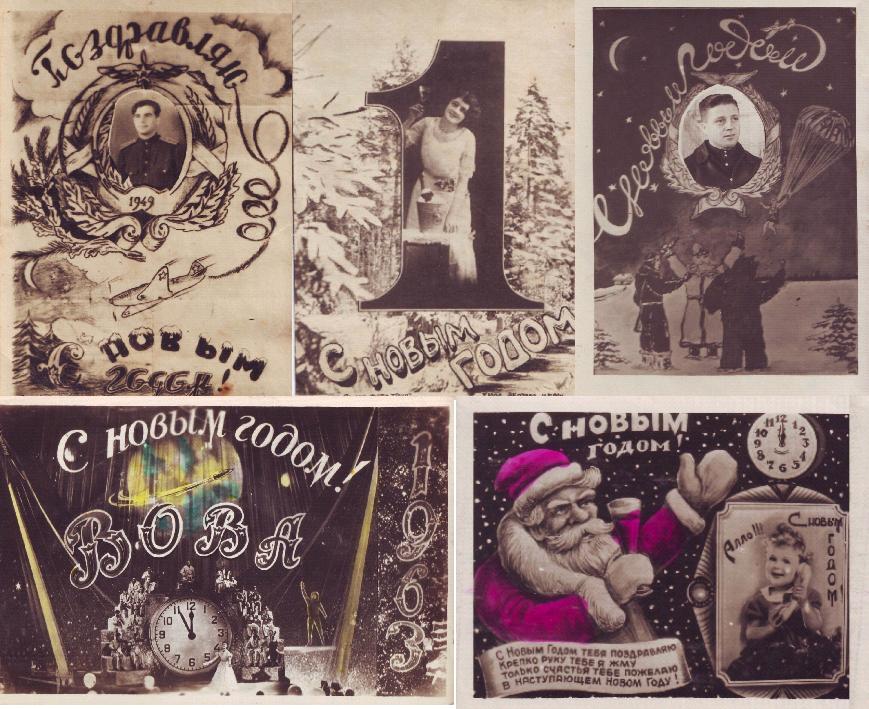 Поздравляю
1949
С новым
годом!
1
С НОВЫМ ГОДОМ
С Новым годом
С НОВЫМ ГОДОМ!
ВОВА
1963
С НОВЫМ
ГОДОМ!
12
1
2
3
4
5
6
7
8
9
10
11
Алло!!! С НОВЫМ
ГОДОМ!
С НОВЫМ ГОДОМ ТЕБЯ ПОЗДРАВЛЯЮ
КРЕПКО РУКУ ТЕБЕ Я ЖМУ
ТОЛЬКО СЧАСТЬЯ ТЕБЕ ПОЖЕЛАЮ
В НАСТУПАЮЩЕМ НОВОМ ГОДУ!